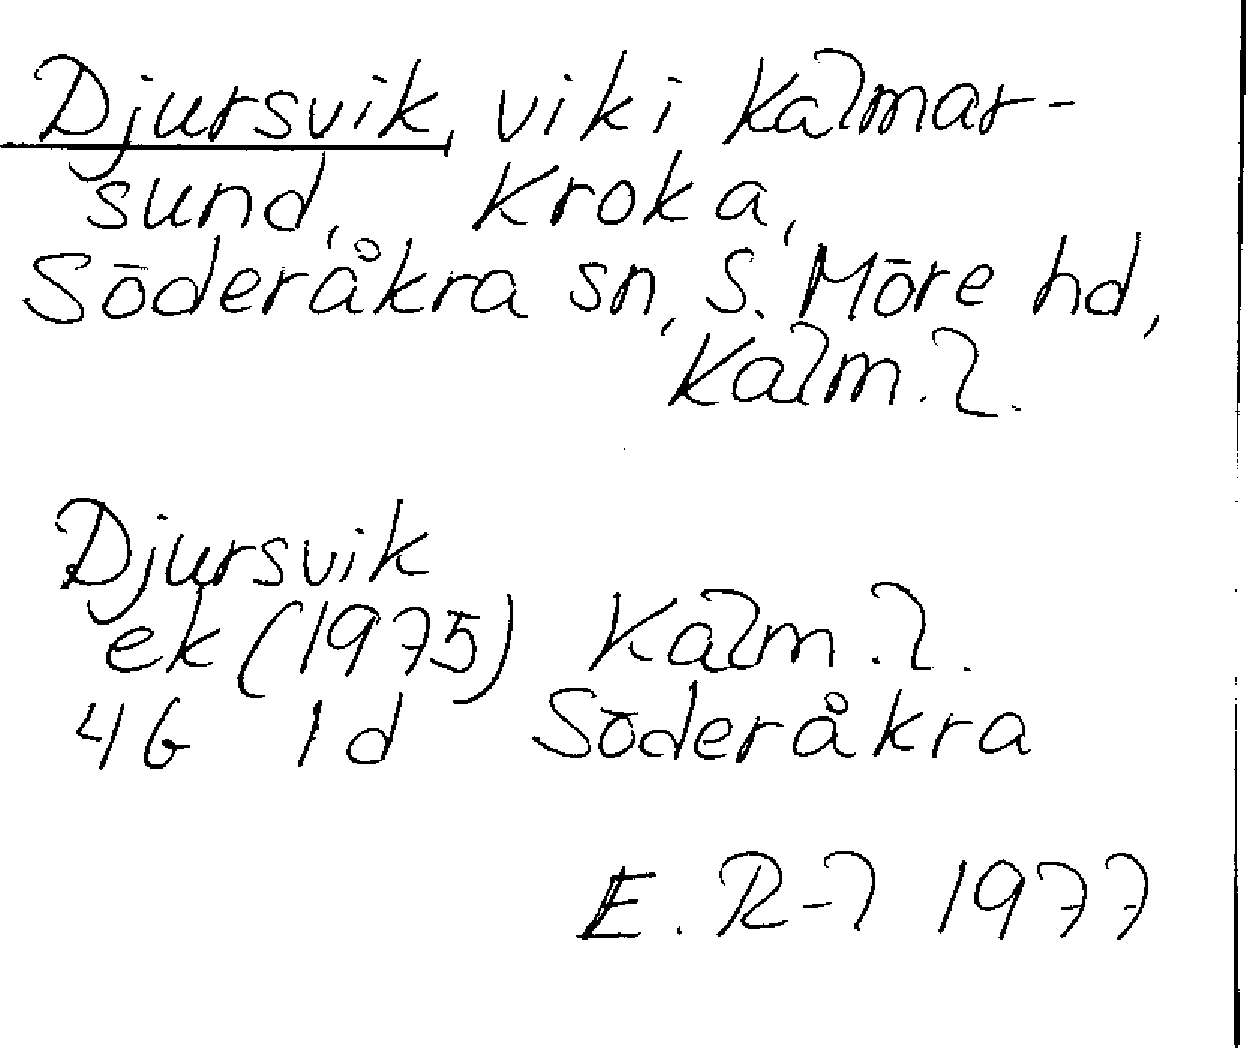 Djursvik, vik i Kalmar-
sund, Kroka,
Söderåkra sn, S. Möre hd,
Kalm. l.
Djursvik
ek (1975) Kalm. l.
4G 1d Söderåkra
E. R-l 1977